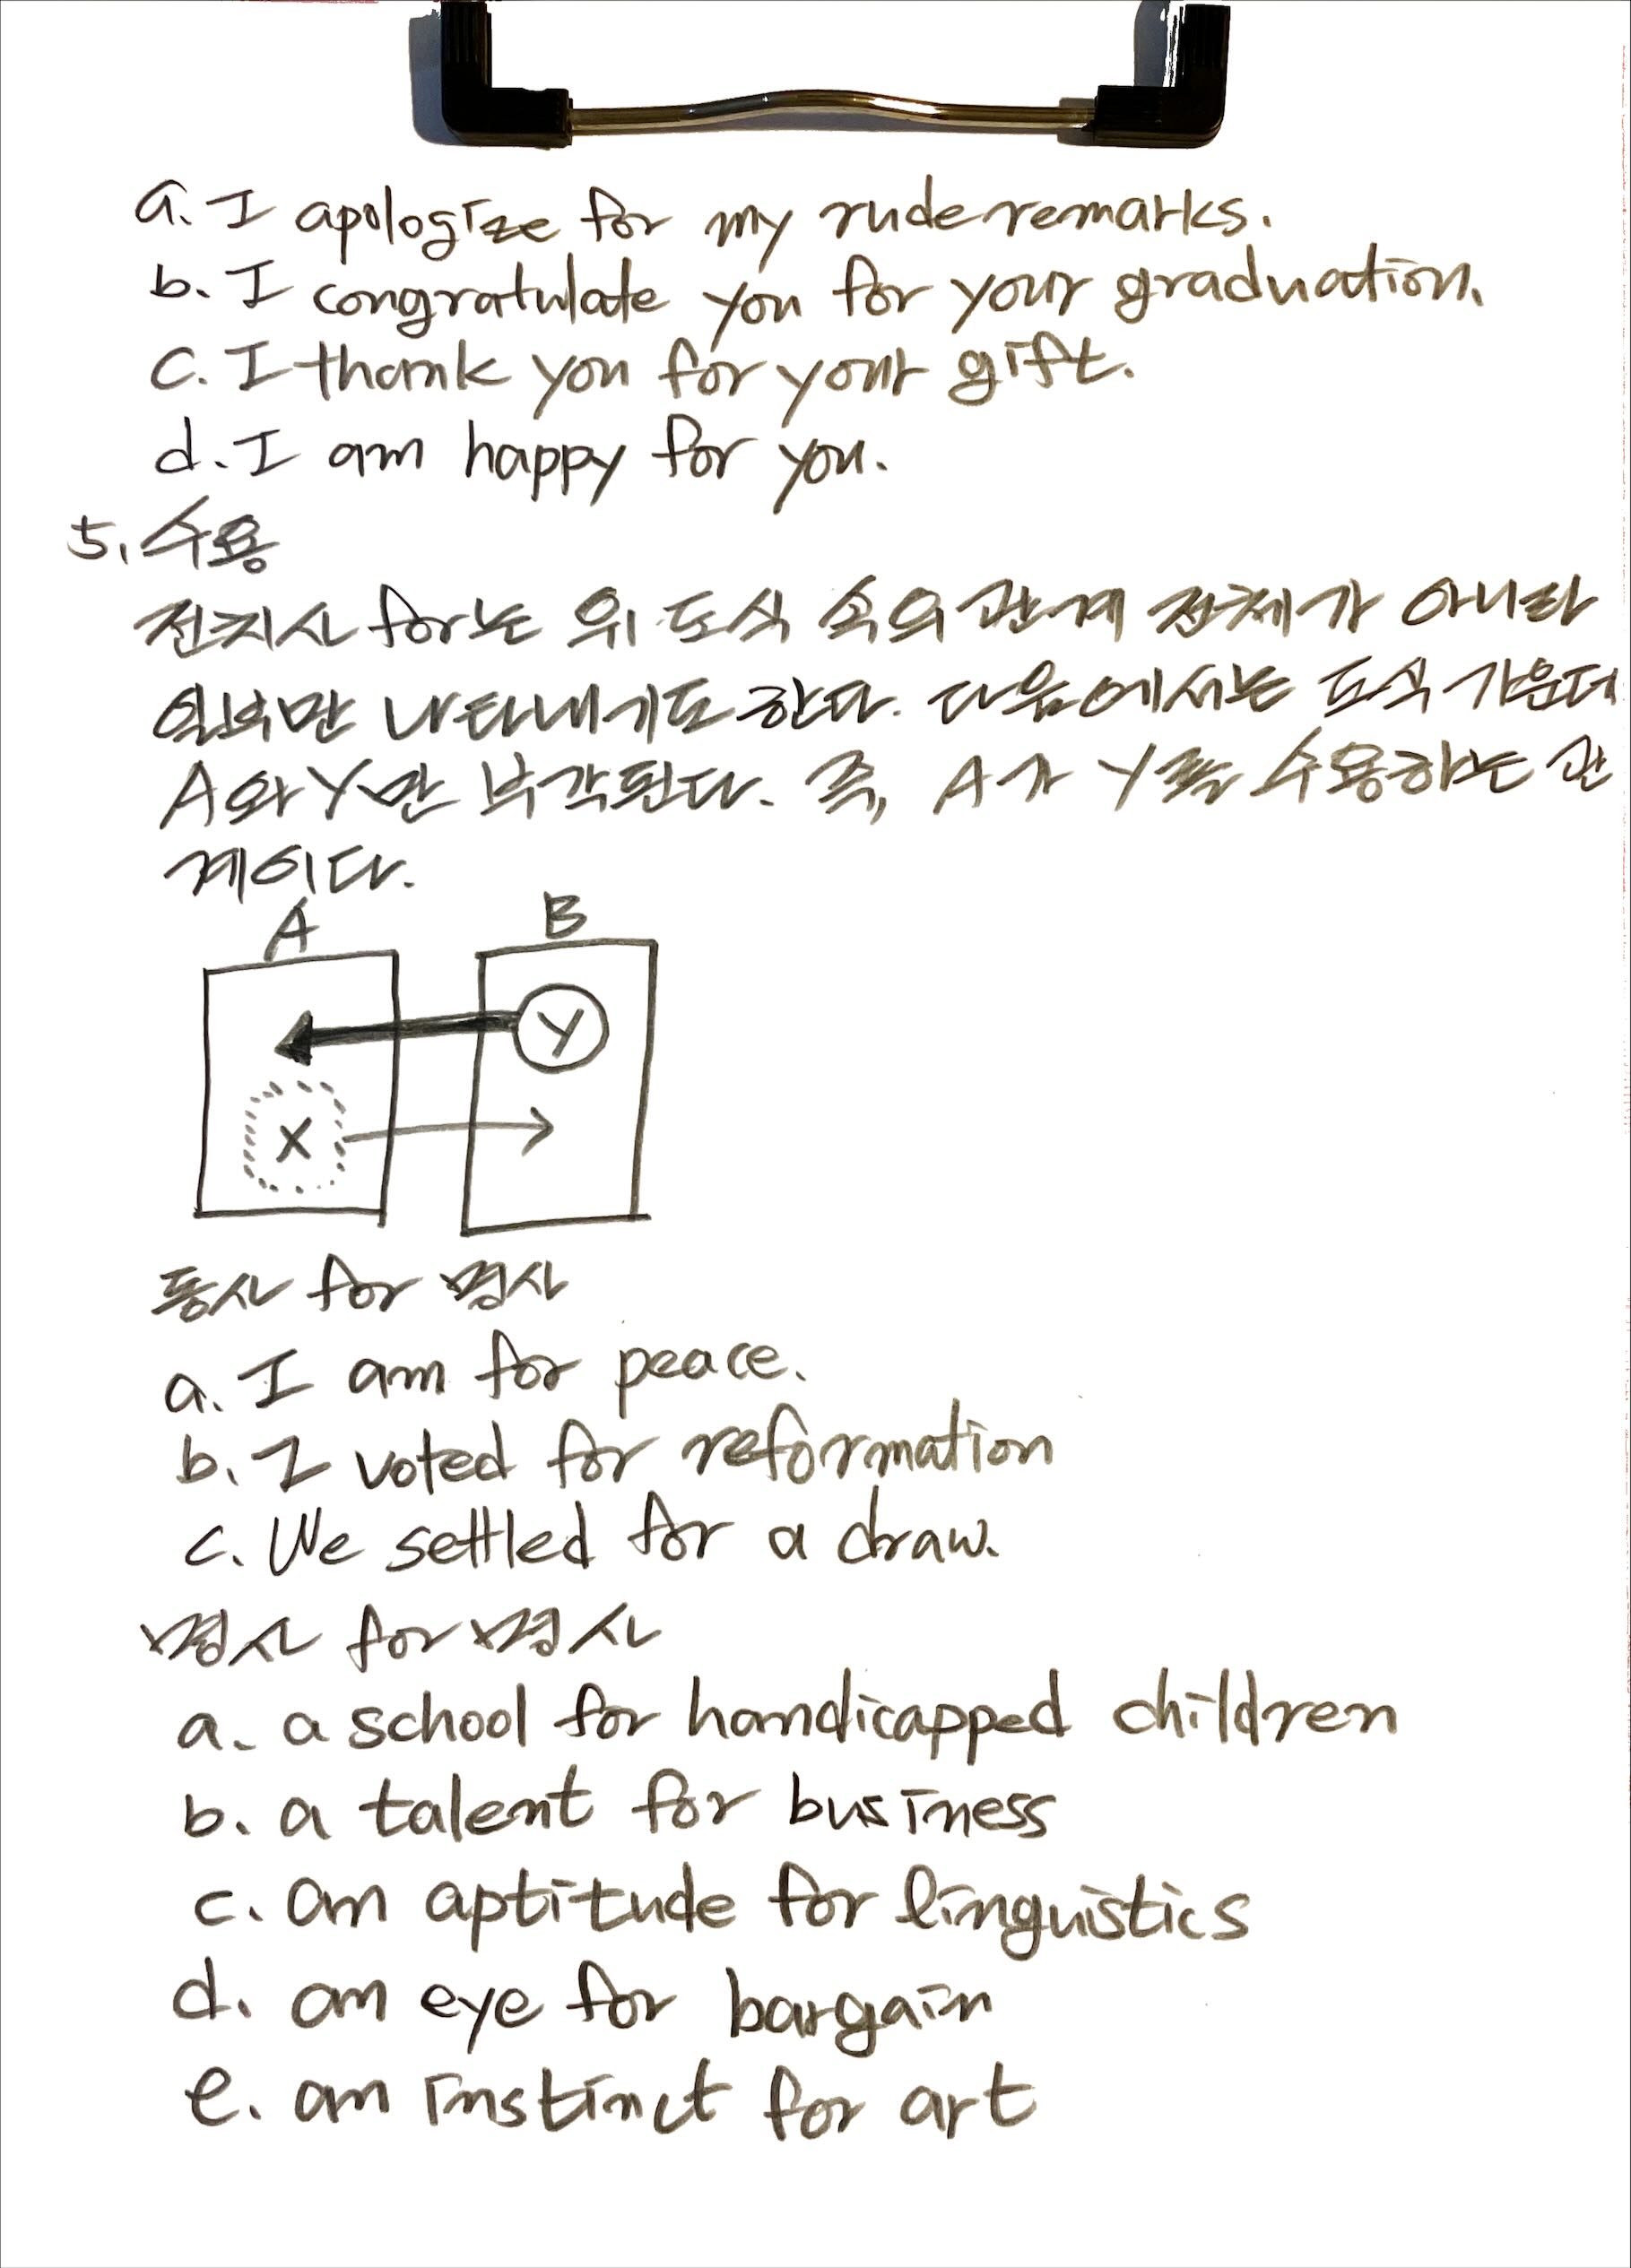 a. I apologize for my rude remarks.
b. I congratulate you for your graduation.
c. I thank you for your gift.
d. I am happy for you.
5. 수용
전치사 for는 위 도식 속의 관계 전체가 아니라
일부만 나타내기도 한다. 다음에서는 도식 가운데
A와 Y만 부각된다. 즉, A가 Y를 수용하는 관
계이다.
A B
Y
X
동사 for 명사
a. I am for peace.
b. I voted for reformation
c. We settled for a draw.
명사 for 명사
a. a school for handicapped children
b. a talent for business
c. an aptitude for linguistics
d. an eye for bargain
e. an instinct for art